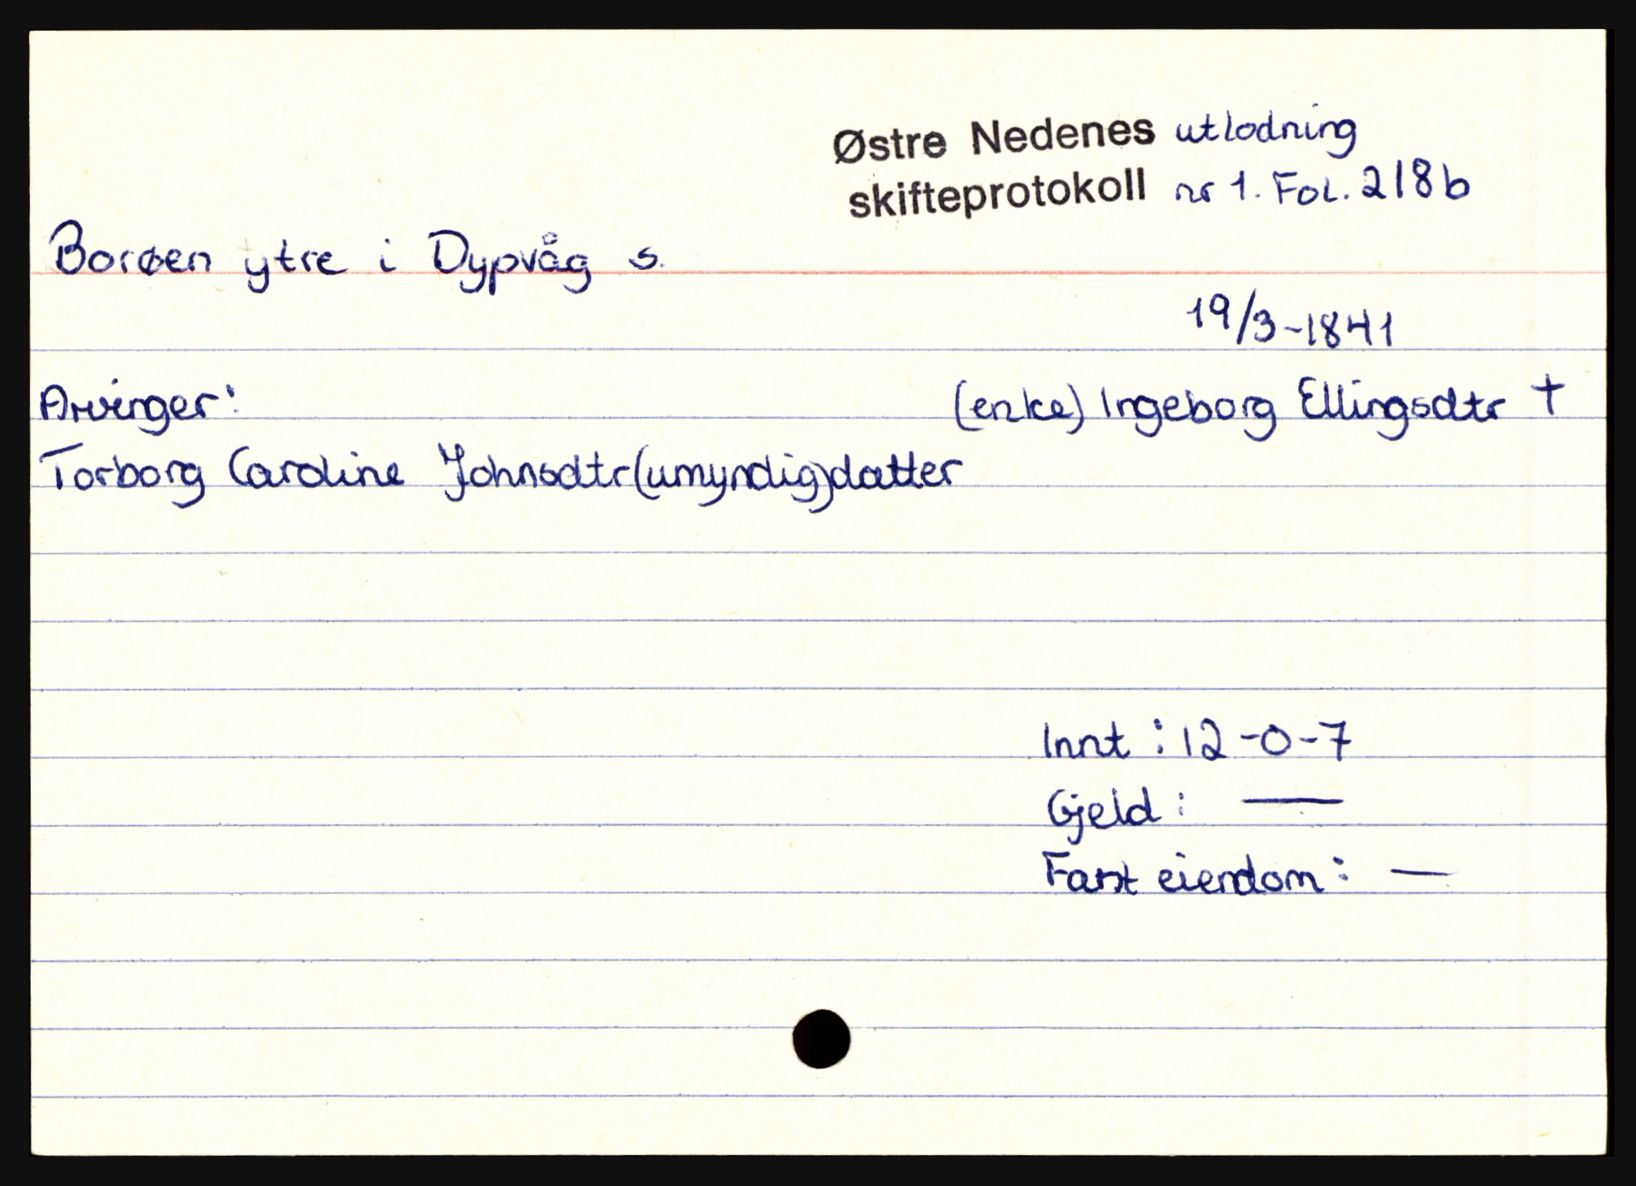 Østre Nedenes utlodning
skifteprotokoll nr 1. Fol. 218b
Borøen ytre i Dypvåg s.
19/3-1841
Arvinger: (enke) Ingeborg Ellingsdtr †
Torborg Caroline Johnsdtr (umyndig) datter
Innt: 12-0-7
Gjeld: —
Fast eiendom: —